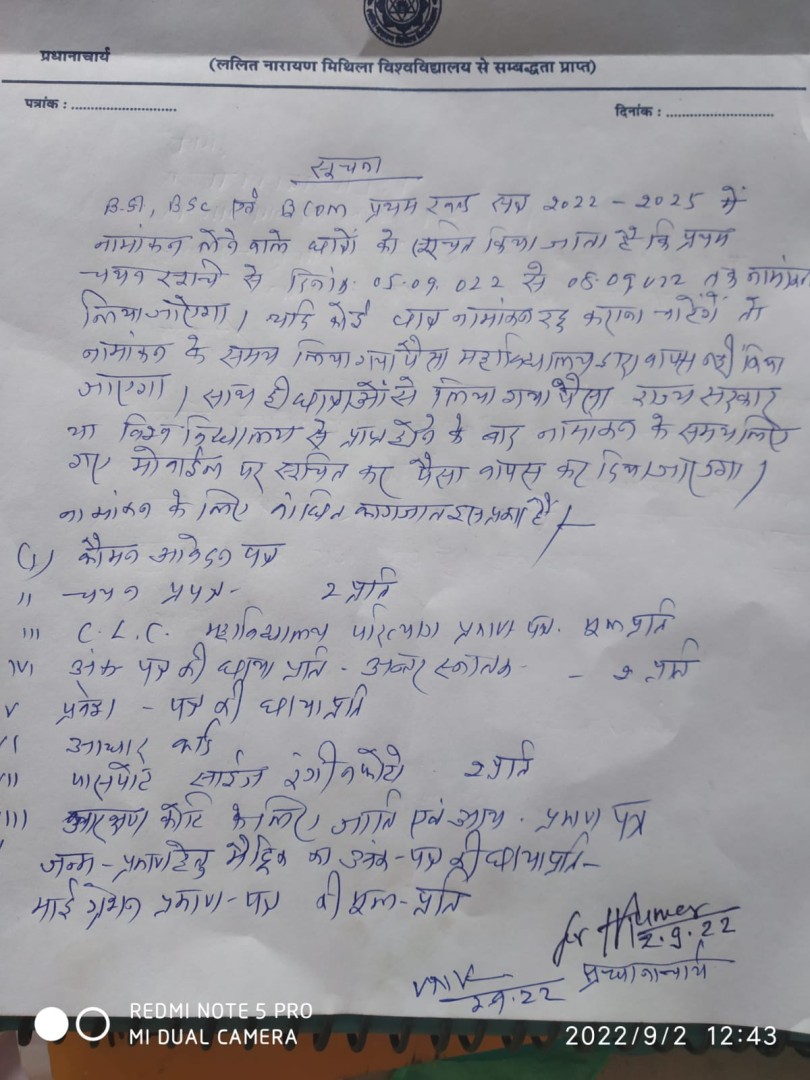 प्रधानाचार्य
(ललित नारायण मिथिला विश्वविद्यालय से सम्बद्धता प्राप्त)
पत्रांक : ............................
दिनांक : ............................
सूचना
B.A, BSc एवं BCom प्रथम खण्ड सत्र 2022 - 2025 में
नामांकन लेने वाले छात्रों को सूचित किया जाता है कि प्रथम
चयन सूची से दिनांक 05.09.022 से 08.09.022 तक नामांकन
लिया जाएगा। यदि कोई छात्र नामांकन रद्द कराना चाहेंगें तो
नामांकन के समय लिया गया पैसा महाविद्यालय द्वारा वापस नहीं किया
जाएगा। साथ ही छात्राओं से लिया गया पैसा राज्य सरकार
या विश्व विद्यालय से प्राप्त होने के बाद नामांकन के समय लिए
गए मोबाईल पर सूचित कर पैसा वापस कर दिया जाएगा।
नामांकन के लिए वांछित कागजात इस प्रकार हैं।
(i) कौमन आवेदन पत्र
ii चयन प्रपत्र - 2 प्रति
iii C.L.C. महाविद्यालय परित्याग प्रमाण पत्र. मूल प्रति
IV) अंक पत्र की छाया प्रति - अन्तर स्नातक - 2 प्रति
V प्रवेश - पत्र की छाया प्रति
VI आधार कार्ड
VII पासपोर्ट साईज रंगीन फोटो 2 प्रति
VIII) आरक्षण कोटि के लिए जाति एवं आय. प्रमाण पत्र
जन्म - प्रमाण हेतु मैट्रिक का अंक - पत्र की छाया प्रति -
माई ग्रेशन प्रमाण - पत्र की मूल - प्रति
for
2.9.22
प्रधानाचार्य
2.9.22
REDMI NOTE 5 PRO
MI DUAL CAMERA
2022/9/2 12:43